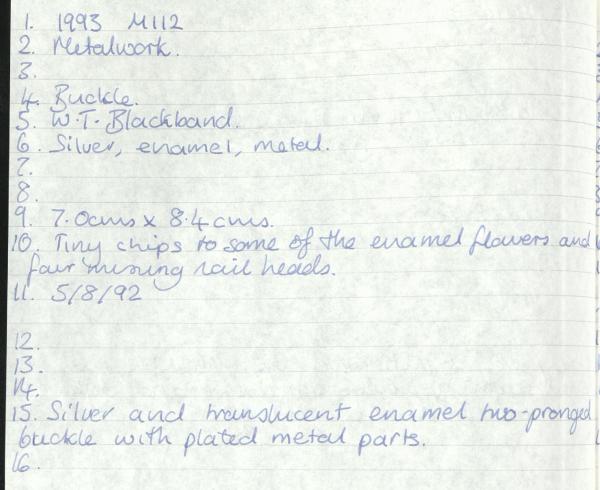 1. 1993 M112
2. Metalwork.
3.
4. Buckle.
5. W.T. Blackband.
6. Silver, enamel, metal.
7.
8.
9. 7.0cms x 8.4 cms.
10. Tiny chips to some of the enamel flowers and
four missing nail heads.
11. 5/8/92
12.
13.
14.
15. Silver and translucent enamel two-pronged
buckle with plated metal parts.
16.